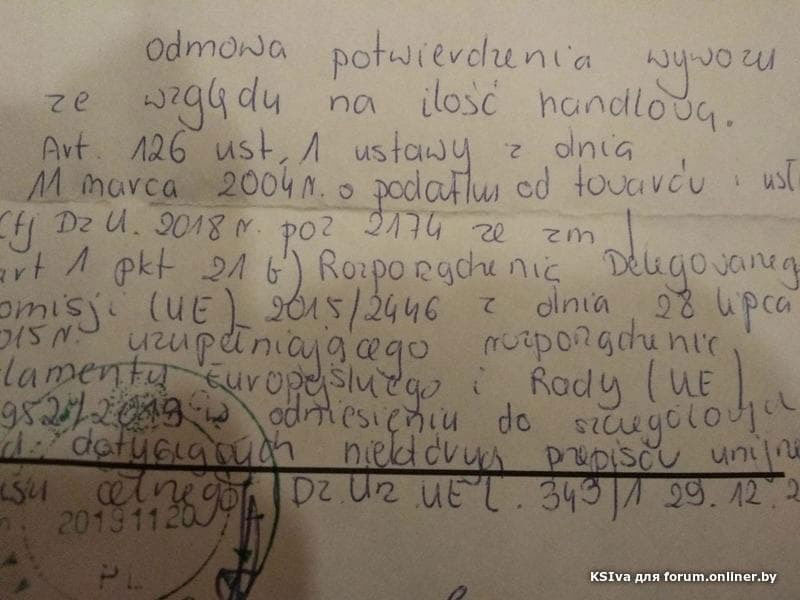 odmowa potwierdzenia wywozu
ze względu na ilość handlową.
Art. 126 ust. 1 ustawy z dnia
11 marca 2004 r. o podatku od towarów i usł
(tj Dz U. 2018 r. poz 2174 ze zm
art 1 pkt 21 b) Rozporządzenie Delegowaneg
omisji (UE) 2015/2446 z dnia 28 lipca
015 r. uzupełniającego rozporządzenie
lamentu Europejskiego i Rady (UE)
952/2013 w odniesieniu do szczegółowych
d. dotyczących niektórych przepisów unijne
su celnego Dz.Urz UE L. 343/1 29.12.2
20191120
PL
KSIva для forum.onliner.by